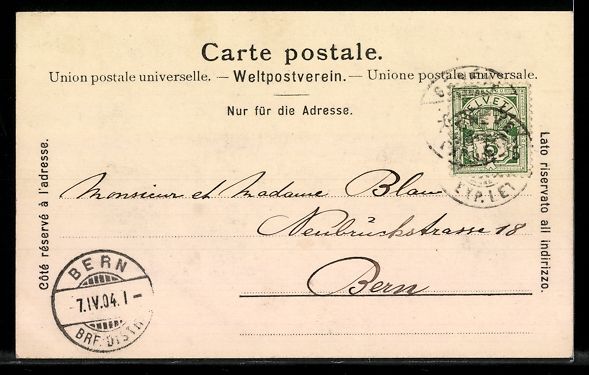 Carte postale.
Union postale universelle. — Weltpostverein. — Unione postale universale.
Nur für die Adresse.
Côté réservé à l'adresse.
Lato riservato all indirizzo.
HELVETIA
Monsieur et Madame Blau
Neubrückstrasse 18
Bern
BERN
7.IV.04. I –
BRF. DISTR.
EXP. LET